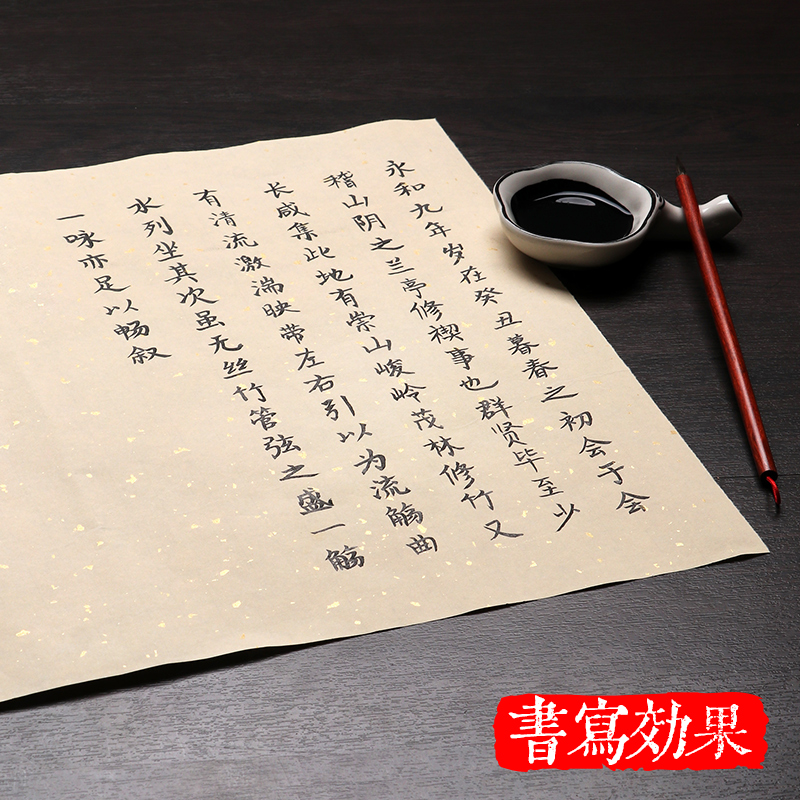 永和九年岁在癸丑暮春之初会于会
稽山阴之兰亭修禊事也群贤毕至少
长咸集此地有崇山峻岭茂林修竹又
有清流激湍映带左右引以为流觞曲
水列坐其次虽无丝竹管弦之盛一觞
一咏亦足以畅叙
書寫効果